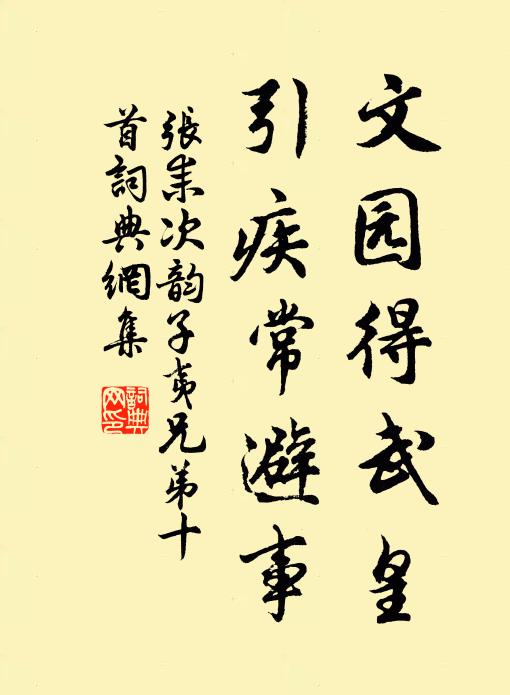 文园得武皇
引疾常避事
張耒次韵子夷兄弟十
首詞典網集
詞典
网印